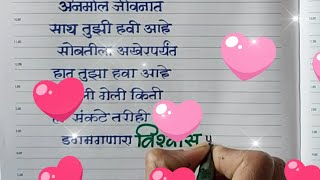 अनमोल जीवनात
साथ तुझी हवी आहे
सोबतीला अखेरपर्यंत
हात तुझा हवा आहे
गेली किती
संकटे तरीही
डगमगणारा विश्वास